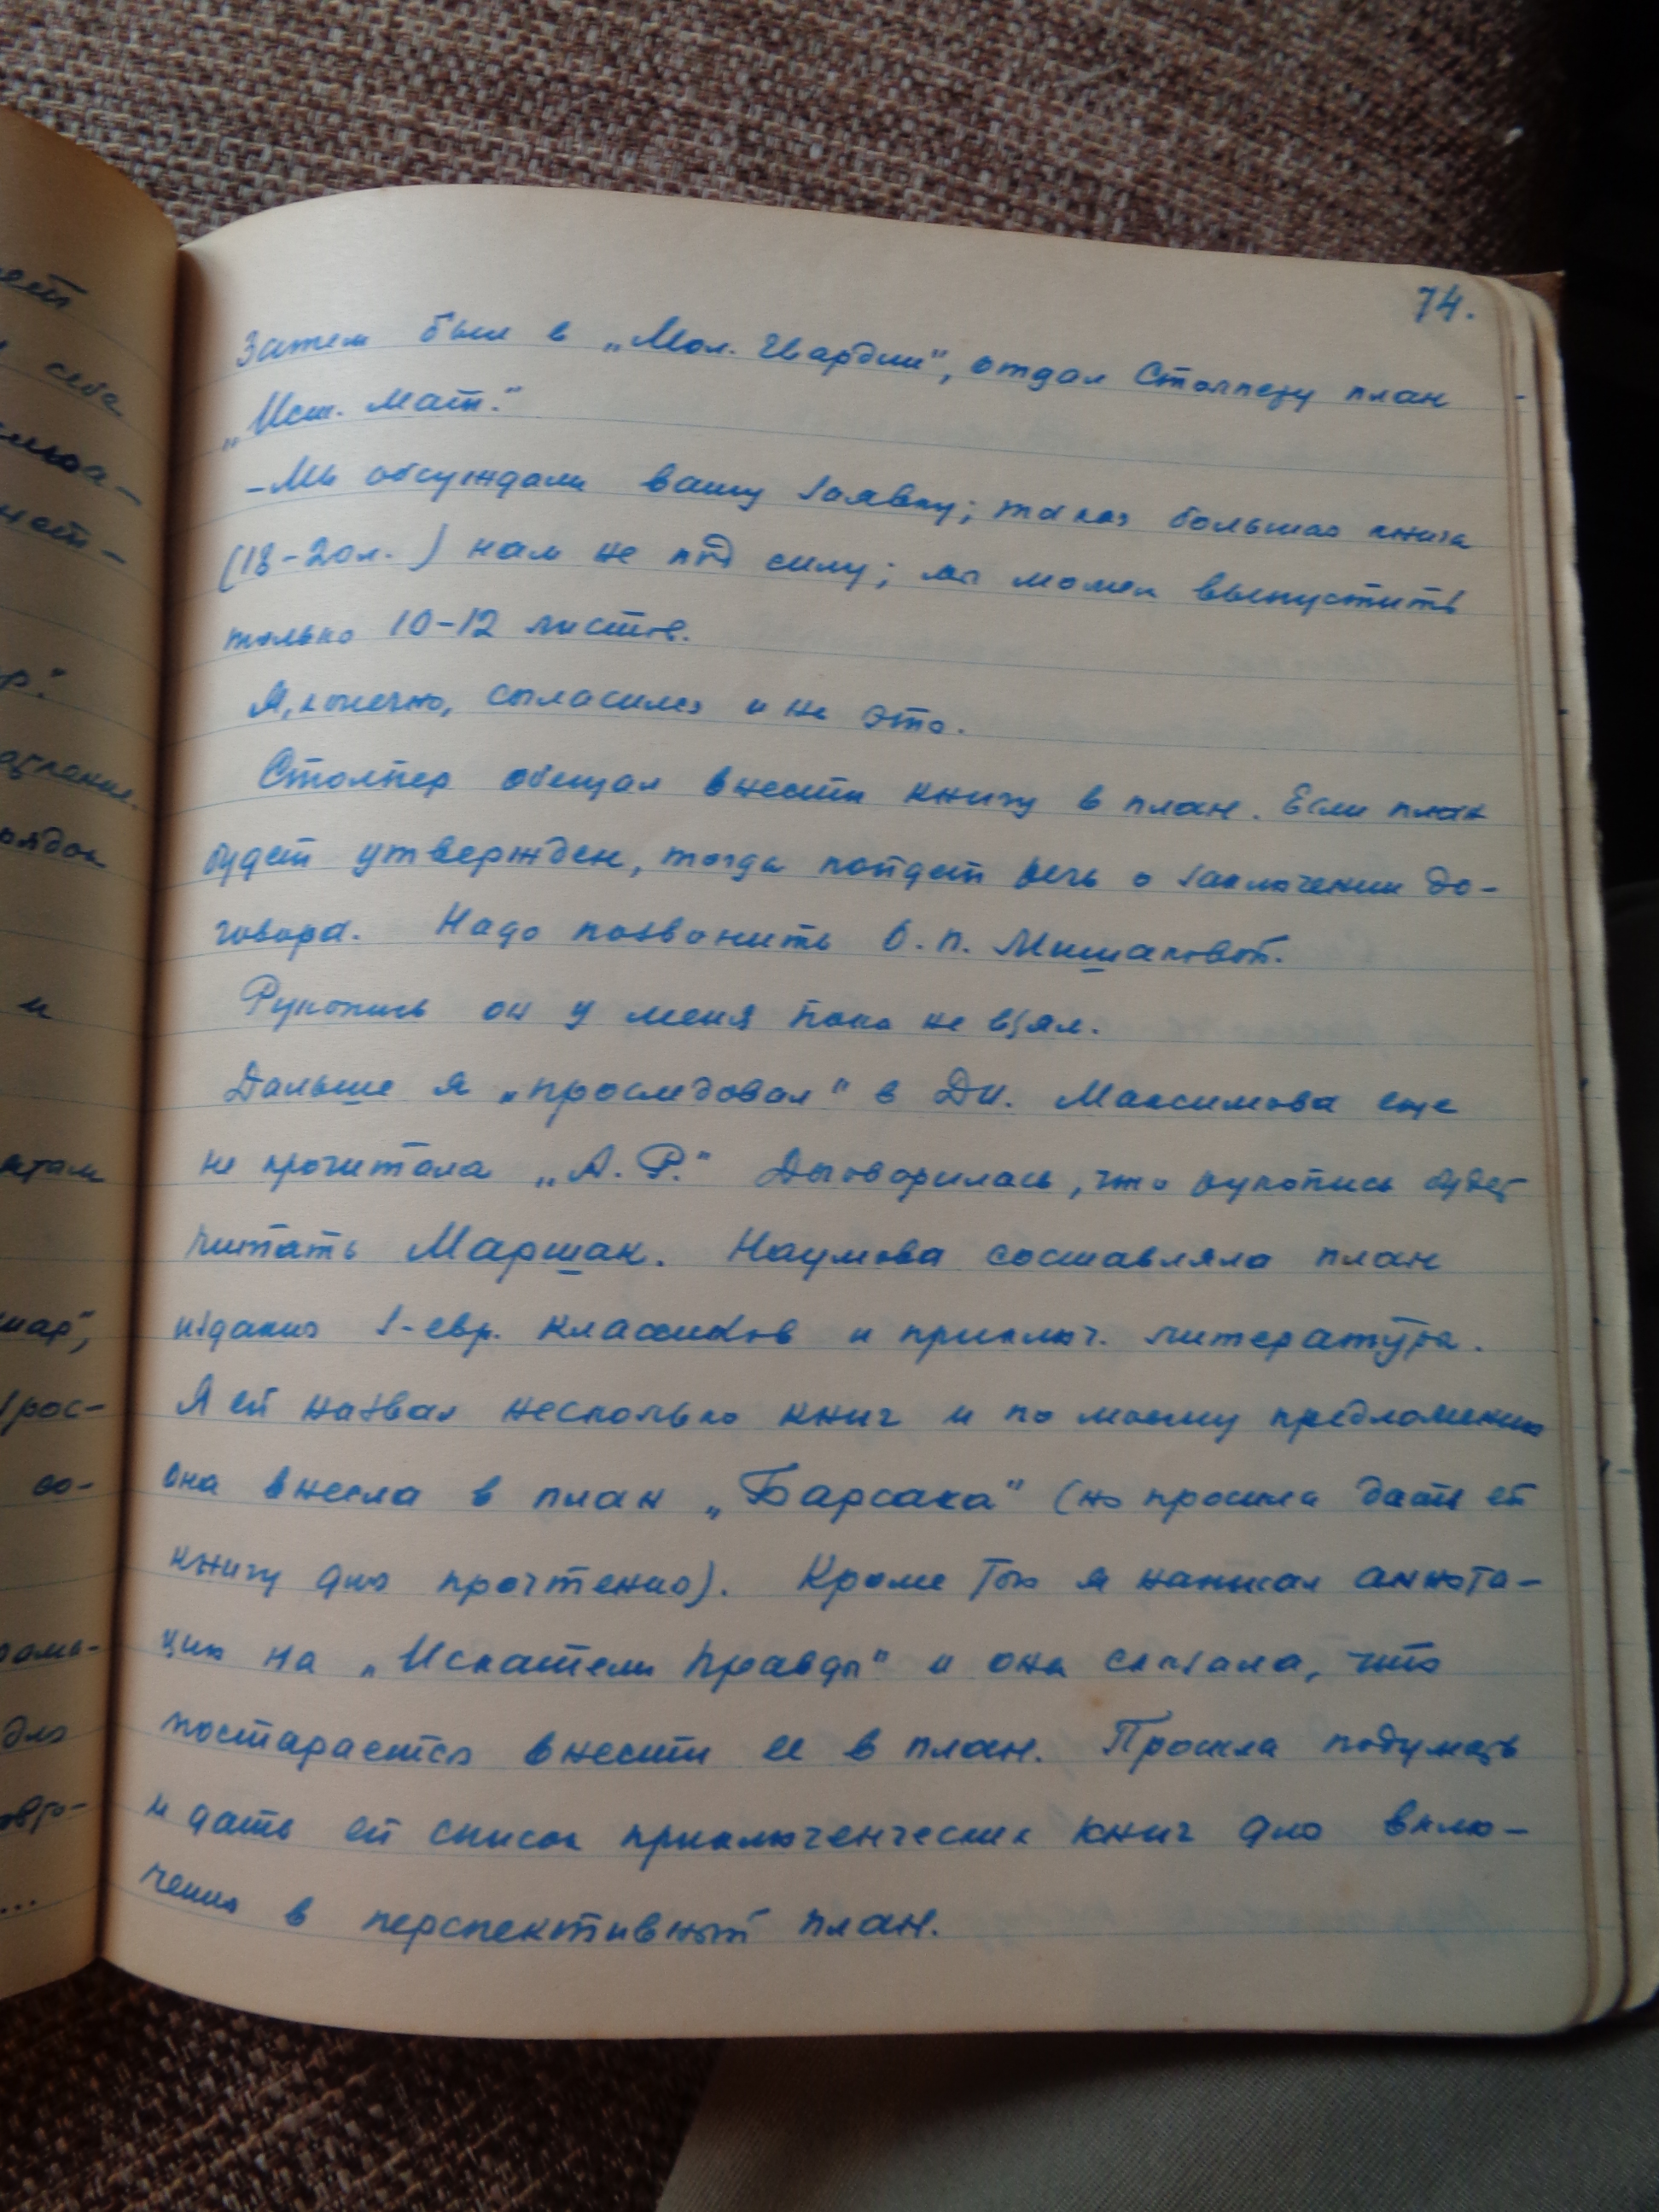 74.
Затем был в „Мол. Гвардии", отдал Столперу план
„Ист. мат."
- Мы обсуждали вашу заявку; такая большая книга
(18-20 л.) нам не под силу; мы можем выпустить
только 10-12 листов.
Я, конечно, согласился и на это.
Столпер обещал внести книгу в план. Если план
будет утвержден, тогда пойдет речь о заключении до-
говора. Надо позвонить О. П. Мишаковой.
Рукопись он у меня пока не взял.
Дальше я „проследовал" в ДИ. Максимова еще
не прочитала „А. Р." Договорилась, что рукопись будет
читать Маршак. Наумова составляла план
издания з-евр. классиков и приключ. литературы.
Я ей назвал несколько книг и по моему предложению
она внесла в план „Барсака" (но просила дать ей
книгу для прочтения). Кроме того я написал аннота-
цию на „Искатели правды" и она сказала, что
постарается внести ее в план. Просила подумать
и дать ей список приключенческих книг для вклю-
чения в перспективный план.